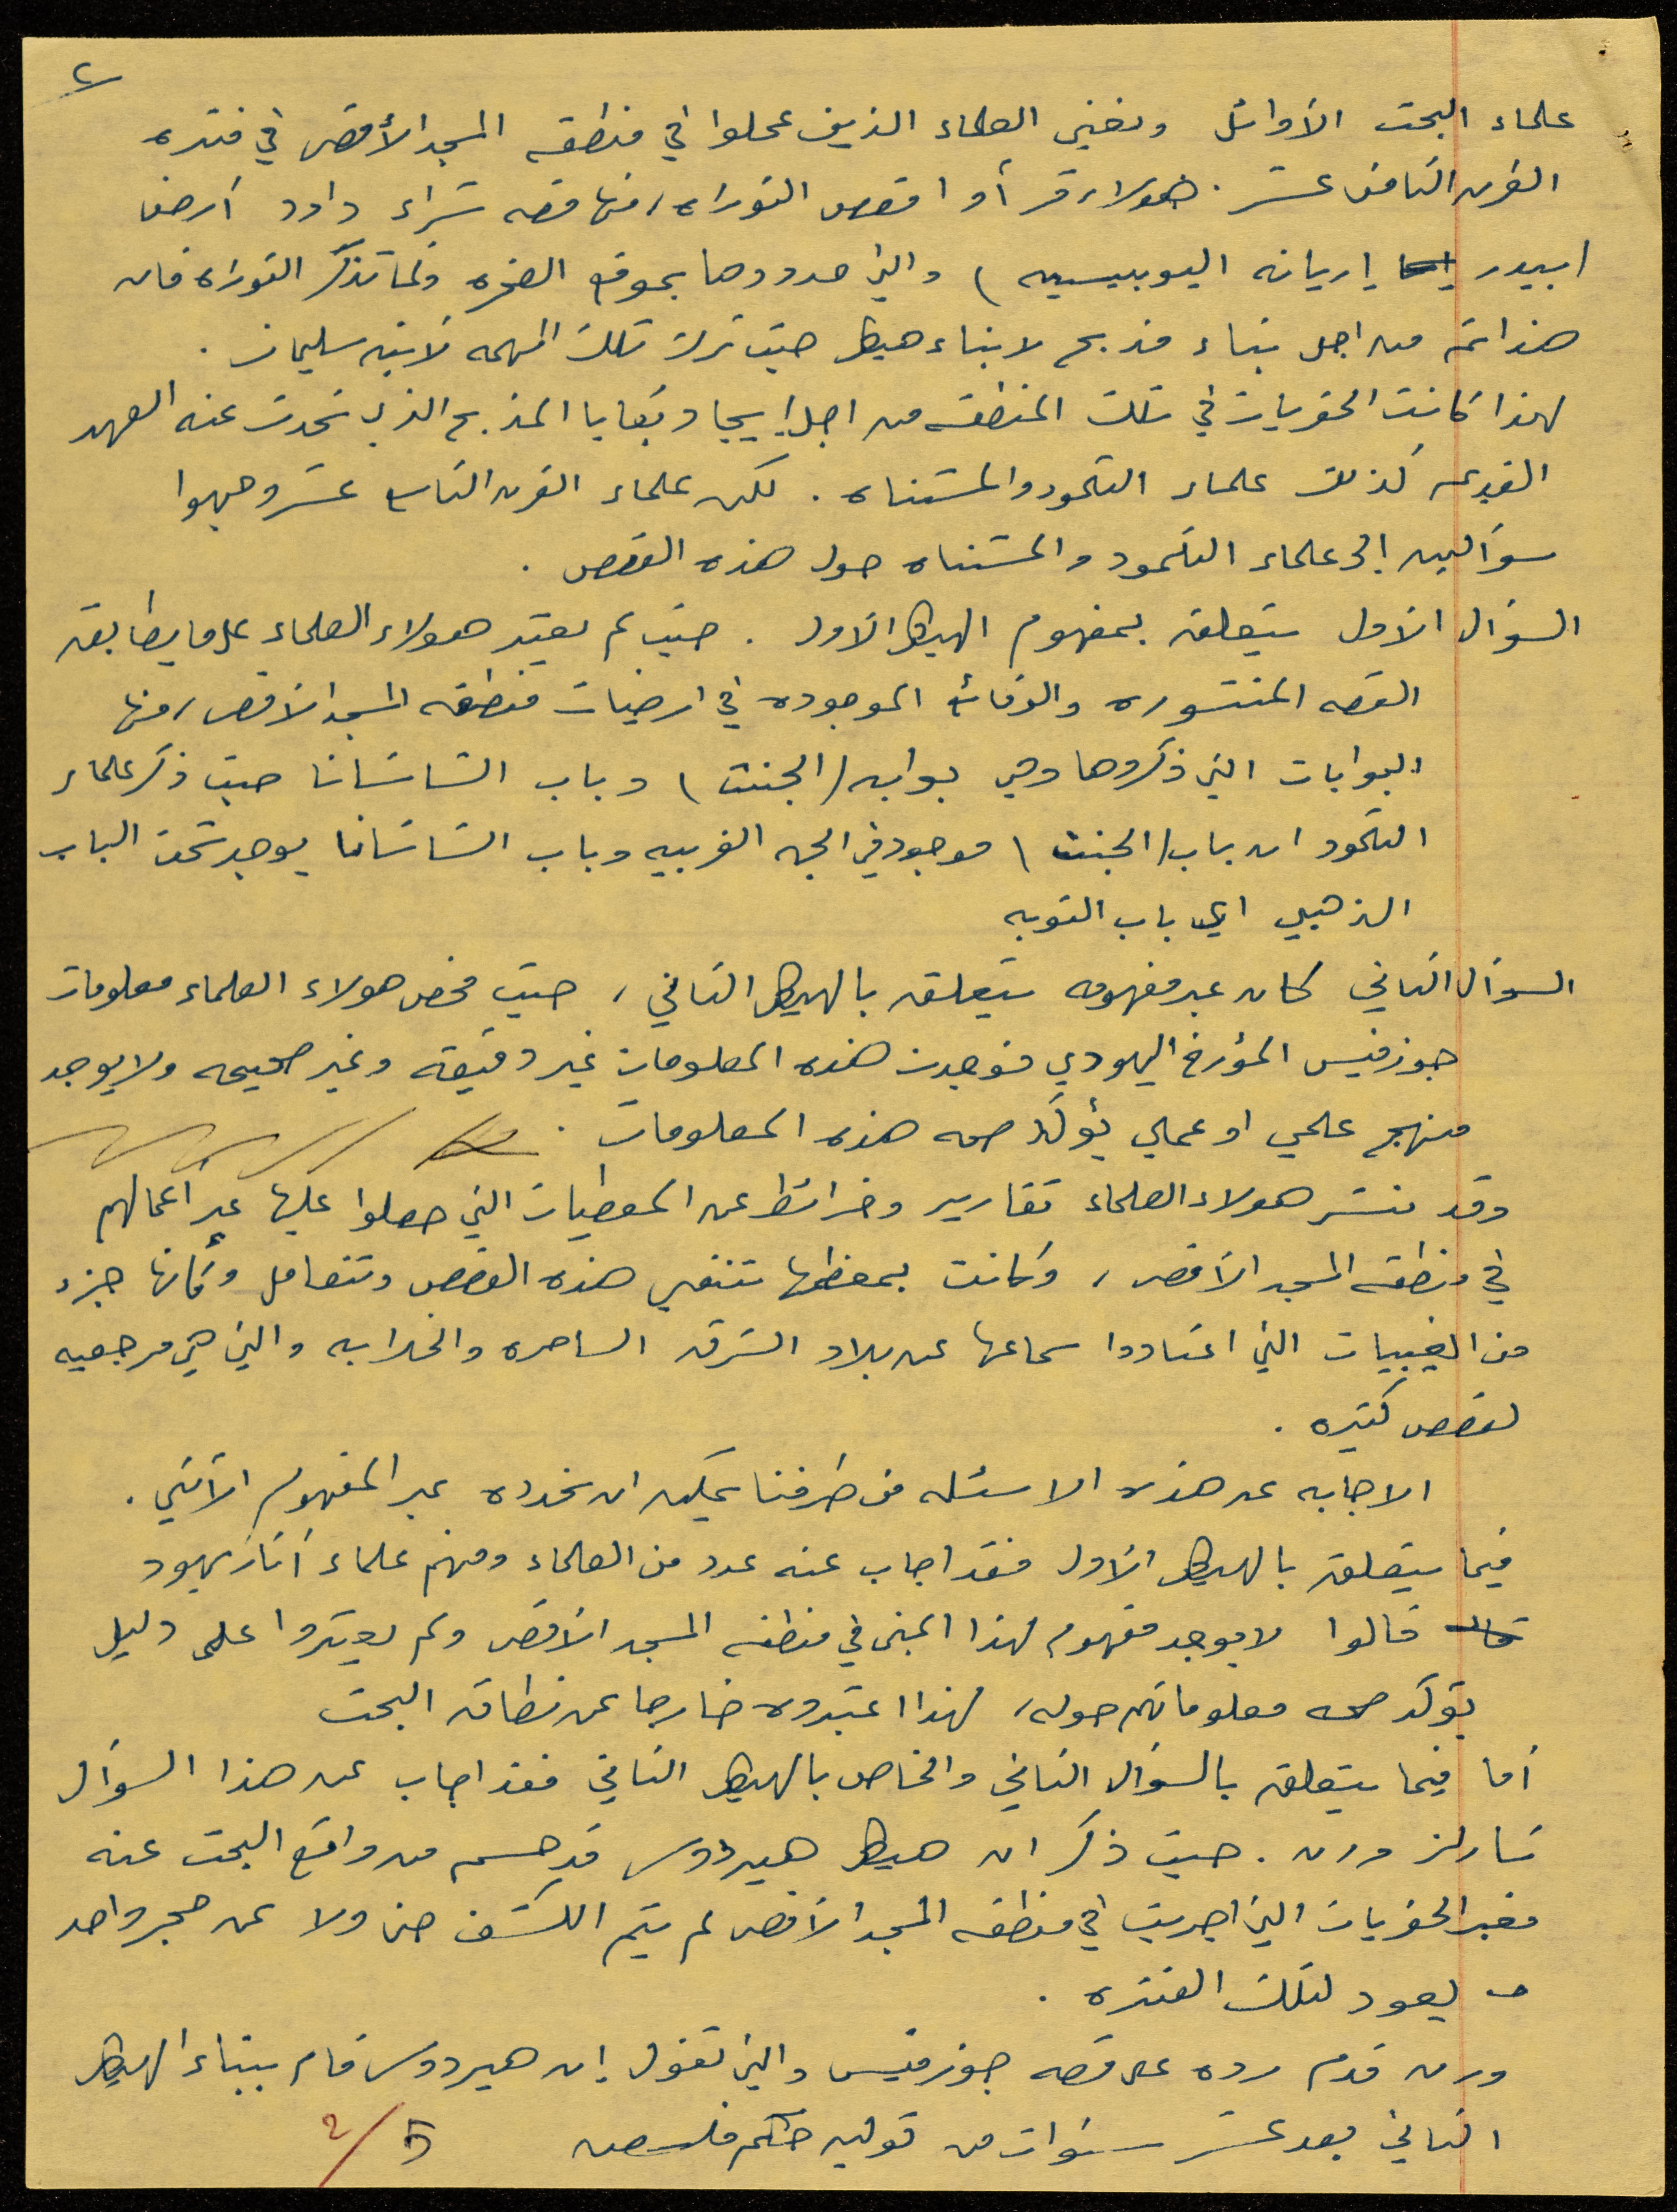 ٢
علماء البحث الأوائل ونخص العلماء الذين عملوا في منطقه المسجد الأقصى في فتره
القرن الثامن عشر . هولاء قرأوا قصص التوراه، منها قصه شراء داود أرض
ابيدر (اريانه اليوبيسيه) والتي حددوها بموقع الصخره وكما تذكر التوراه فان
هذا تم من اجل بناء مذبح لابناء هيكل حيث ترك تلك المهمه لابنه سليمان .
لهذا كانت الحفريات في تلك المنطقه من اجل إيجاد بقايا المذبح الذي تحدث عنه العهد
القديم كذلك علماء التلمود والمشناه . لكن علماء القرن التاسع عشر وجهوا
سؤالين إلى علماء التلمود والمشناه حول هذه القصص .
السؤال الأول يتعلق بمفهوم الهيكل الاول . حيث لم يعثر هولاء العلماء على ما يطابق
القصه المنشوره والوقائع الموجوده في ارضيات منطقه المسجد الاقصى، منها
البوابات التي ذكروها وهي بوابه (الجنت) وباب الشاشانا حيث ذكر علماء
التلمود ان باب (الجنت) موجود في الجهه الغربيه وباب الشاشانا يوجد تحت الباب
الذهبي اي باب التوبه
السؤال الثاني كان عبر مفهومه يتعلق بالهيكل الثاني، حيث فحص هولاء العلماء معلومات
جوزفيس المؤرخ اليهودي فوجدت هذه المعلومات غير دقيقه وغير صحيحه ولا يوجد
منهج علمي او عملي يؤكد صحه هذه المعلومات .
وقد نشر هولاء العلماء تقارير وخرائط عن المعطيات التي حصلوا عليها عبر أعمالهم
في منطقه المسجد الاقصى، وكانت بمعظمها تنفي هذه القصص وتتعامل وكأنها جزء
من الغيبيات التي اعتادوا سماعها عن بلاد الشرق الساحره والخلابه والتي هي مرجعيه
لقصص كثيره .
الاجابه عن هذه الاسئله من طرفنا يمكن ان نحدده عبر المفهوم الآتي .
فيما يتعلق بالهيكل الاول فقد اجاب عنه عدد من العلماء ومنهم علماء أثار يهود
قالوا لا يوجد مفهوم لهذا المبنى في منطقه المسجد الاقصى ولم يعثروا على دليل
يؤكد صحه معلوماتهم حوله، لهذا اعتبروه خارجا عن نطاق البحث
أما فيما يتعلق بالسؤال الثاني والخاص بالهيكل الثاني فقد اجاب عن هذا السؤال
شارلز ورن . حيث ذكر ان هيكل هيردوس قد حسم من واقع البحث عنه
فعبر الحفريات التي اجريت في منطقه المسجد الاقصى لم يتم الكشف حتى ولا عن حجر واحد
يعود لتلك الفتره .
ورن قدم رده على قصه جوزفيس والتي تقول إن هيردوس قام ببناء الهيكل
الثاني بعد عشر سنوات من توليه حكم فلسطين
٢/5